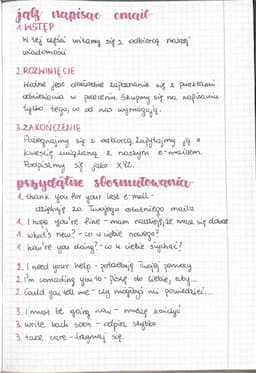 jak napisać email
1. WSTĘP
W tej części witamy się z odbiorcą naszej
wiadomości
2. ROZWINIĘCIE
Ważne jest dokładne zapoznanie się z punktami
odniesienia w poleceniu. Skupmy się na napisaniu
tylko tego, co od nas wymagają.
3. ZAKOŃCZENIE
Pożegnajmy się z odbiorcą. Zapytajmy ją o
kwestię związaną z naszym e-mailem.
Podpiszmy się jako XYZ.
przydatne sformułowania
1. thank you for your last e-mail -
dziękuję za Twojego ostatniego maila
1. I hope you're fine - mam nadzieję, że masz się dobrze
1. what's new? - co u ciebie nowego?
1. how're you doing? - co u ciebie słychać?
2. I need your help - potrzebuję Twojej pomocy
2. I'm you to - piszę do Ciebie, aby...
2. Could you tell me - czy mógłbyś mi powiedzieć...
3. I must be going now - muszę kończyć
3. write back soon - odpisz szybko
3. take care - trzymaj się.